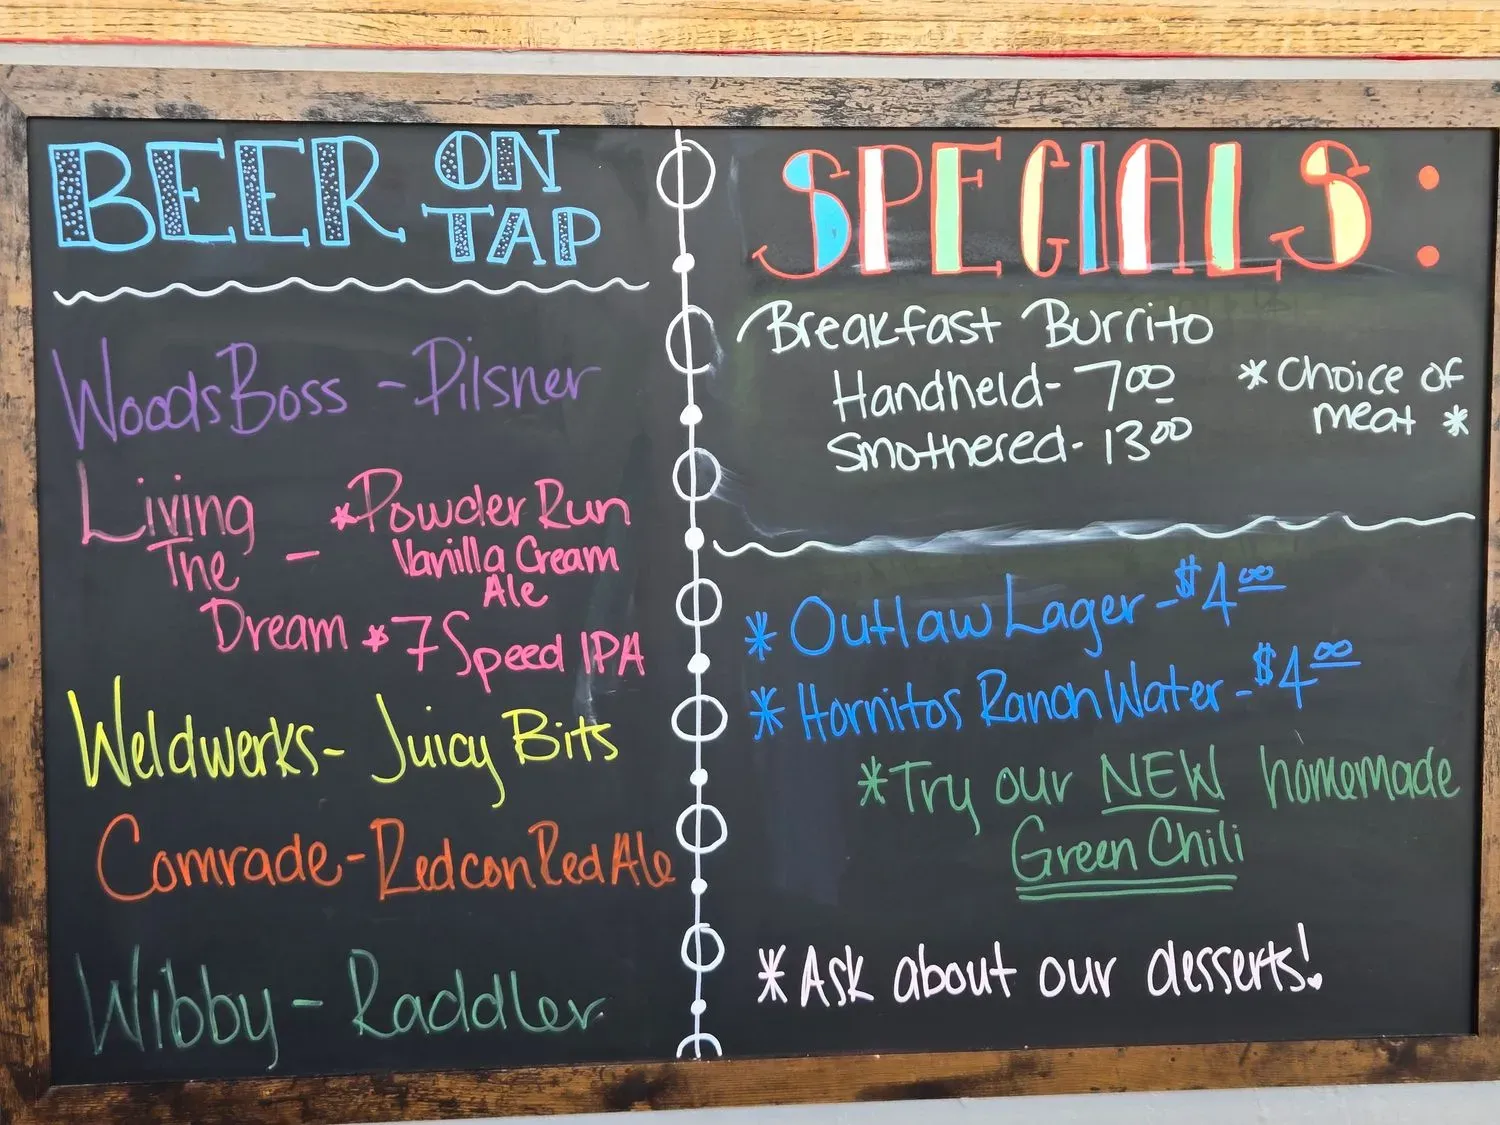 BEER ON TAP
WoodsBoss - Pilsner
Living The Dream - *Powder Run
Vanilla Cream
Ale
*7 Speed IPA
Weldwerks - Juicy Bits
Comrade - Redcon Red Ale
Wibby - Raddler
SPECIALS:
Breakfast Burrito
Handheld - 7.00
Smothered - 13.00
*Choice of
meat *
* Outlaw Lager - $4.00
* Hornitos Ranch Water - $4.00
*Try our NEW homemade
Green Chili
*Ask about our desserts!